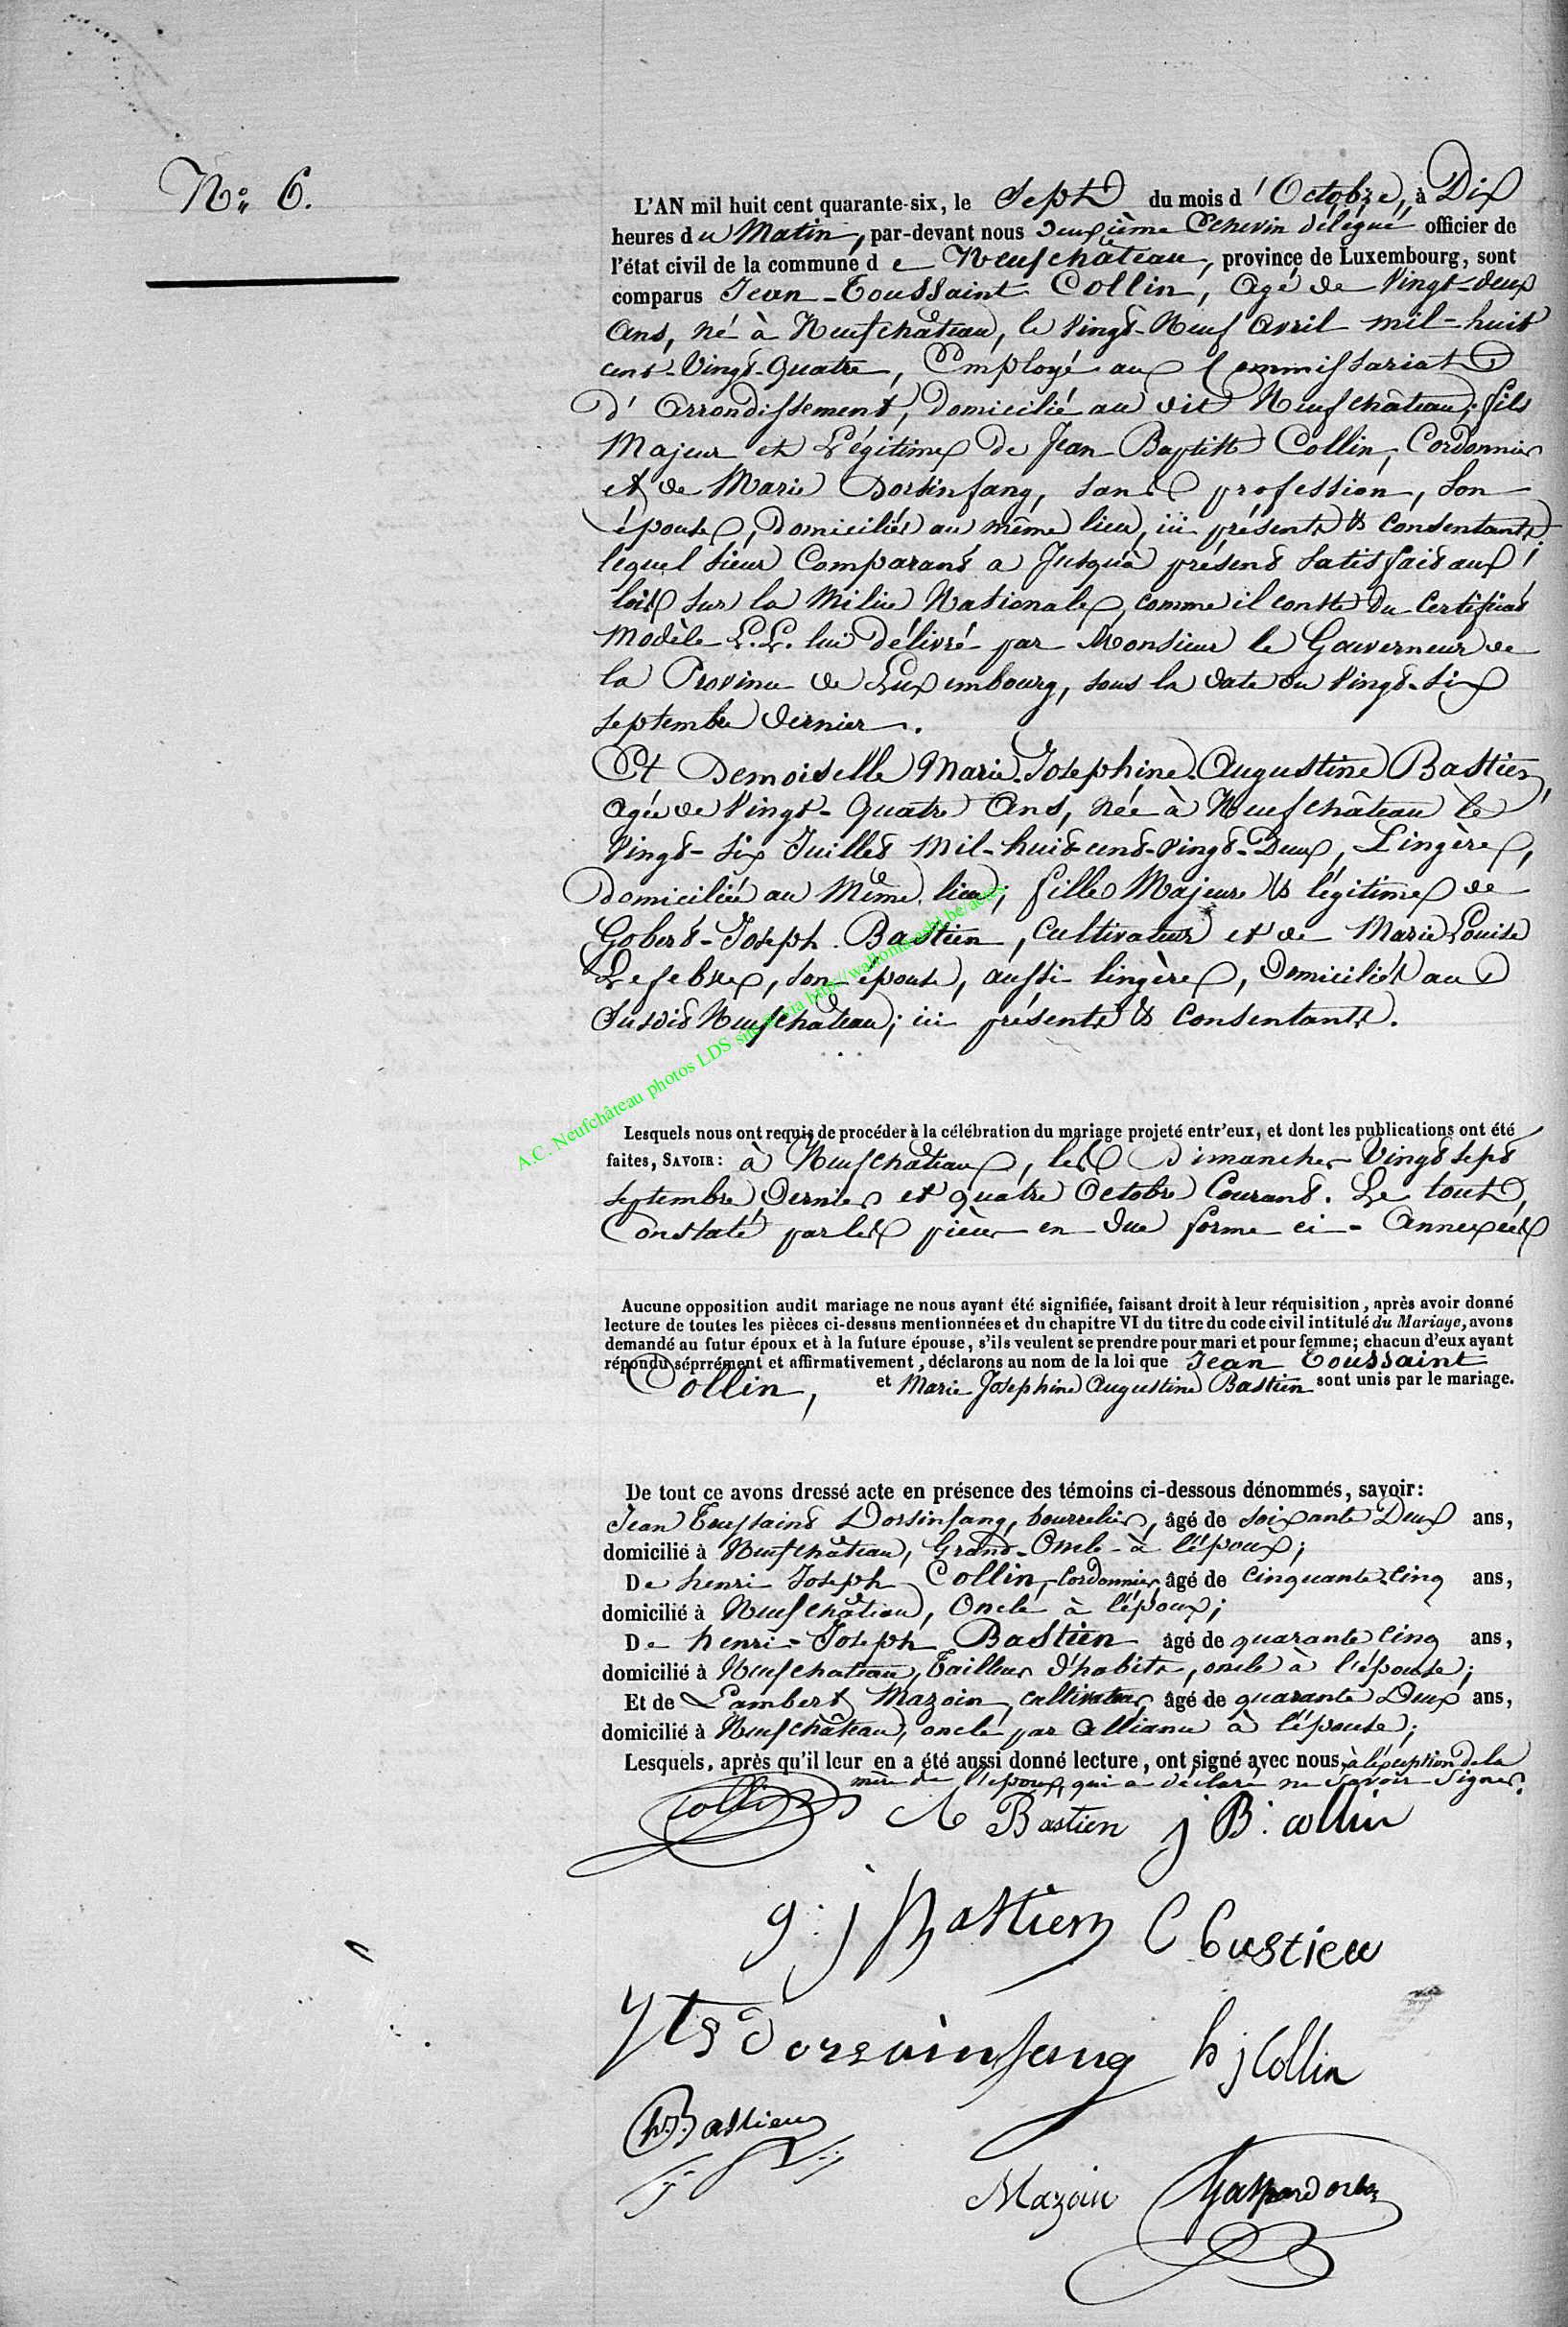 N° 6.
L'AN mil huit cent quarante-six, le Sept du mois d'Octobre, à Dix
heures du Matin, par-devant nous Deuxième Echevin délégué officier de
l'état civil de la commune de Neufchâteau, province de Luxembourg, sont
comparus Jean-Toussaint Collin, Agé de Vingt-deux
Ans, né à Neufchâteau, le Vingt-Neuf Avril mil-huit
cent-Vingt-Quatre, Employé au Commissariat
d'Arrondissement, Domicilié au dit Neufchâteau; fils
Majeur et Légitime de Jean Baptiste Collin, Cordonnier
et de Marie Dorsinfang, sans profession, Son
épouse, Domiciliés au même lieu, ici présents & consentants;
lequel Sieur Comparant a Jusqu'à présent Satisfait aux
lois sur la Milice Nationale, comme il conste du Certificat
Modèle L.L. lui Délivré par Monsieur le Gouverneur de
la Province de Luxembourg, sous la date du Vingt-Six
septembre Dernier.
Et Demoiselle Marie-Josephine-Augustine Bastien,
agée de Vingt-Quatre Ans, née à Neufchâteau le
Vingt-Six Juillet Mil-huit cent-Vingt-Deux, Lingère,
Domiciliée au Même lieu; fille Majeure & légitime de
Gobert-Joseph Bastien, Cultivateur et de Marie Louise
Lefebvre, son épouse, aussi lingère, Domiciliés au
Susdit Neufchâteau; ici présents & Consentants.
A.C. Neufchâteau photos LDS sur via http://wallonia.asbl.be/actes
Lesquels nous ont requis de procéder à la célébration du mariage projeté entr'eux, et dont les publications ont été
faites, SAVOIR: à Neufchâteau, les Dimanches Vingt sept
Septembre Dernier et quatre Octobre Courant. Le tout
Constaté par les pièces en due forme ci-Annexées
Aucune opposition audit mariage ne nous ayant été signifiée, faisant droit à leur réquisition, après avoir donné
lecture de toutes les pièces ci-dessus mentionnées et du chapitre VI du titre du code civil intitulé du Mariage, avons
demandé au futur époux et à la future épouse, s'ils veulent se prendre pour mari et pour femme; chacun d'eux ayant
répondu séprrément et affirmativement, déclarons au nom de la loi que Jean Toussaint
Collin, et Marie Josephine Augustine Bastien sont unis par le mariage.
De tout ce avons dressé acte en présence des témoins ci-dessous dénommés, savoir:
Jean Toussaint Dorsinfang, bourrelier, âgé de Soixante Deux ans,
domicilié à Neufchâteau, Grand-Oncle à l'époux;
De henri Joseph Collin, Cordonnier, âgé de Cinquante-Cinq ans,
domicilié à Neufchâteau, Oncle à l'époux;
De henri-Joseph Bastien âgé de quarante Cinq ans,
domicilié à Neufchateau, Tailleur d'habits, oncle à l'épouse;
Et de Lambert Mazoin, cultivateur, âgé de quarante Deux ans,
domicilié à Neufchâteau, oncle par Alliance à l'épouse;
Lesquels, après qu'il leur en a été aussi donné lecture, ont signé avec nous, à l'exception de la
mère de l'époux, qui a déclaré ne Savoir Signer.
Collin Bastien j B. collin
g. j Bastien Bastien
Dorsainfang h j Collin
Bastien
Mazoin